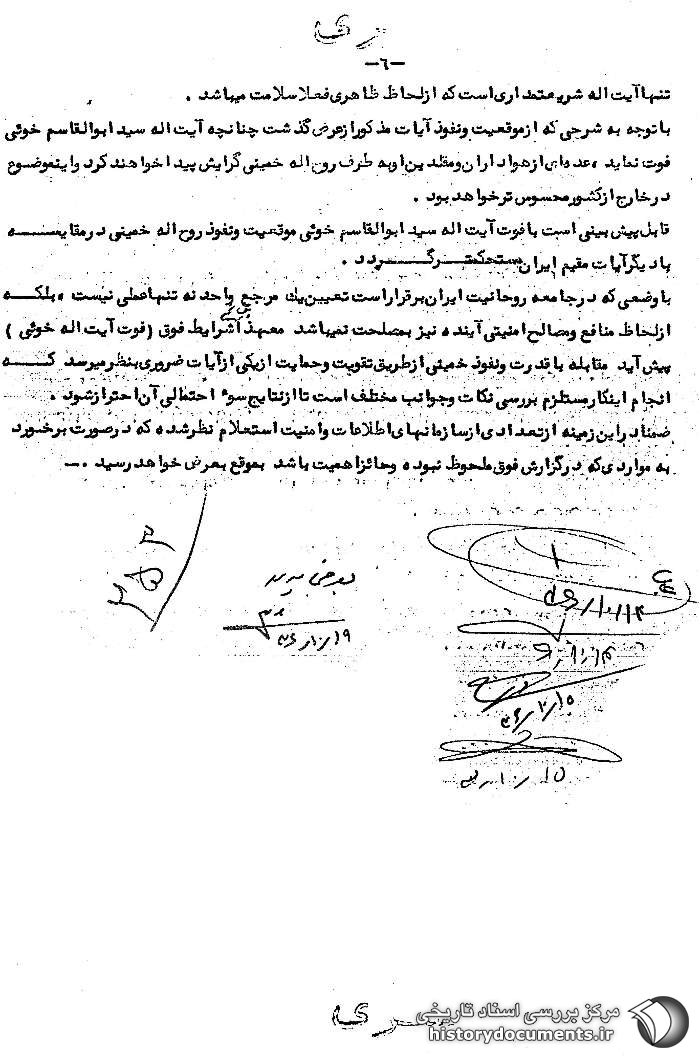 سری
-٦-
تنها آیت اله شریعتمداری است که از لحاظ ظاهری فعلا سلامت میباشد .
با توجه به شرحی که از موقعیت و نفوذ آیات مذکور از عرض گذشت چنانچه آیت اله سید ابوالقاسم خوئی
فوت نماید ، عده ای از هواداران و مقلدین او به طرف روح اله خمینی گرایش پیدا خواهند کرد و اینموضوع
در خارج از کشور محسوس تر خواهد بود .
قابل پیش بینی است با فوت آیت اله سید ابوالقاسم خوئی موقعیت و نفوذ روح اله خمینی در مقایسه
با دیگر آیات مقیم ایران مستحکمتر گردد .
با وضعی که در جامعه روحانیت ایران برقرار است تعیین یک مرجع واحد نه تنها عملی نیست ، بلکه
از لحاظ منافع و مصالح امنیتی آینده نیز بمصلحت نمیباشد معهذا شرایط فوق ( فوت آیت اله خوئی )
پیش آید مقابله با قدرت و نفوذ خمینی از طریق تقویت و حمایت از یکی از آیات ضروری بنظر میرسد که
انجام اینکار مستلزم بررسی نکات و جوانب مختلف است تا از نتایج سوء احتمالی آن احتراز شود .
ضمنا در این زمینه از تعدادی از سازمانهای اطلاعات و امنیت استعلام نظر شده که در صورت برخورد
به مواردی که در گزارش فوق ملحوظ نبوده و حائز اهمیت باشد بموقع بعرض خواهد رسید .-
بعرض برسد
سری
مرکز بررسی اسناد تاریخی
historydocuments.ir